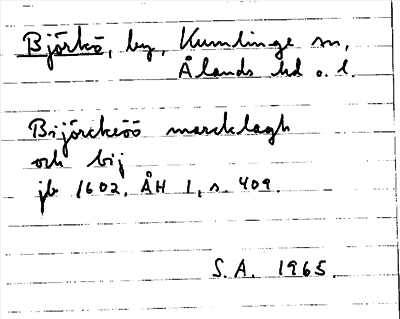 Björkö, by, Kumlinge sn,
Ålands hd o. l.
Bijörckeöö marcklagh
och bij
jb 1602. ÅH 1, s. 409.
S.A. 1965.